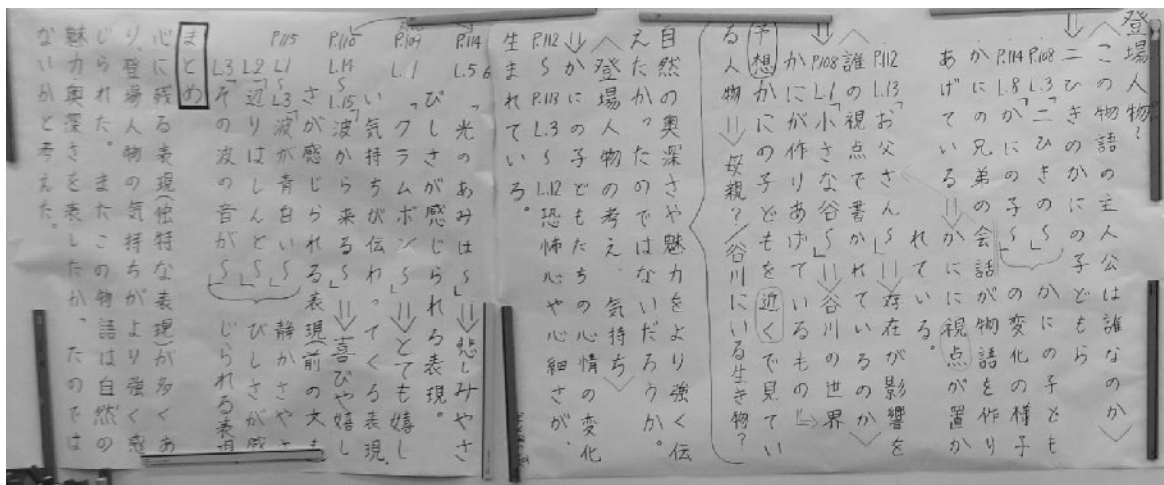 登場人物?
〈この物語の主人公は誰なのか〉
⇓二ひきのかにの子どもら
P.108 L.3「二ひきの〜」かにの子ども
P.114 L.8「かにの子〜」の変化の様子
かにの兄弟の会話が物語を作り
あげている⇒かにに視点が置か
れている。
P.112 L.13「お父さん〜」⇒存在が影響を
〈誰の視点で書かれているのか〉
⇓P.108 L.1「小さな谷〜」⇒谷川の世界
かにが作りあげているもの
予想 かにの子どもを近くで見てい
る人物⇒母親?/谷川にいる生き物?
自然の奥深さや魅力をより強く伝
えたかったのではないだろうか。
〈登場人物の考え、気持ち〉
⇓かにの子どもたちの心情の変化
P.112〜P.113 L.3〜L.12 恐怖心や心細さが、
生まれている。
P.114 L.5 6「光のあみは〜」⇒悲しみやさ
びしさが感じられる表現。
P.109 L.1「クラムボン〜」⇒とても嬉し
い気持ちが伝わってくる表現
P.110 L.14〜L.15「波から来る〜」⇒喜びや嬉し
さが感じられる表現(前の文も
P.115 L1〜L3「波が青白い〜」静かさやさ
L2「辺りはしんと〜」びしさが感
L3「その波の音が〜」じられる表現
まとめ
心に残る表現(独特な表現)が多くあ
り、登場人物の気持ちがより強く感
じられた。またこの物語は自然の
魅力、奥深さを表したかったのでは
ないかと考えた。